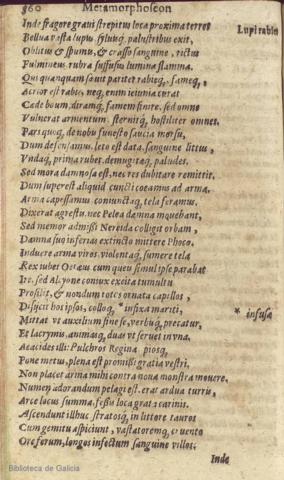 360 Metamorphoseon
Inde fragore graui strepitus loca proxima terret
Lupi rabies
Bellua vasta lupus. syluisq; palustribus exit,
Oblitus & spumis, & crasso sanguine, rictus
Fulmineus. rubra suffusus lumina flamma.
Qui quanquam sæuit pariter rabieq; fameq;,
Acrior est rabie. neq; enim ieiunia curat
Cæde boum, diramq; famem finire. sed omne
Vulnerat armentum. sternitq; hostiliter omne.
Pars quoq; de nobis funesto saucia morsu,
Dum defensamus. leto est data. sanguine littus,
Vndaq; prima rubet. demugitæq; paludes.
Sed mora damnosa est. nec res dubitare remittit.
Dum superest aliquid cuncti coeamus ad arma.
Arma capessamus coniunctaq; tela feramus.
Dixerat agrestis. nec Pelea damna mouebant,
Sed memor admissi Nereida colligit orbam,
Damna sua inferias extincto mittere Phoco.
Induere arma viros. violentaq; sumere tela
Rex iubet Oetæus cum queis simul ipse parabat
Ire. sed Alcyone coniux excita tumultu
Prosilit, & nondum totos ornata capillos,
Disijcit hos ipsos, colloq; * infixa mariti,
* infusa
Mittat vt auxilium sine se, verbisq; precatur,
Et lacrymis, animasq; duas vt seruet in vna.
Aeacides illi: Pulchros Regina piosq;
Pone metus, plena est promissi gratia vestri.
Non placet arma mihi contra noua monstra mouere.
Numen adorandum pelagi est. erat ardua turris,
Arce locus summa. fessis loca grata carinis.
Ascendunt illhuc stratosq; in littore tauros
Cum gemitu aspiciunt, vastatoremq; cruento
Ore ferum, longos infectum sanguine villos.
Inde
Biblioteca de Galicia